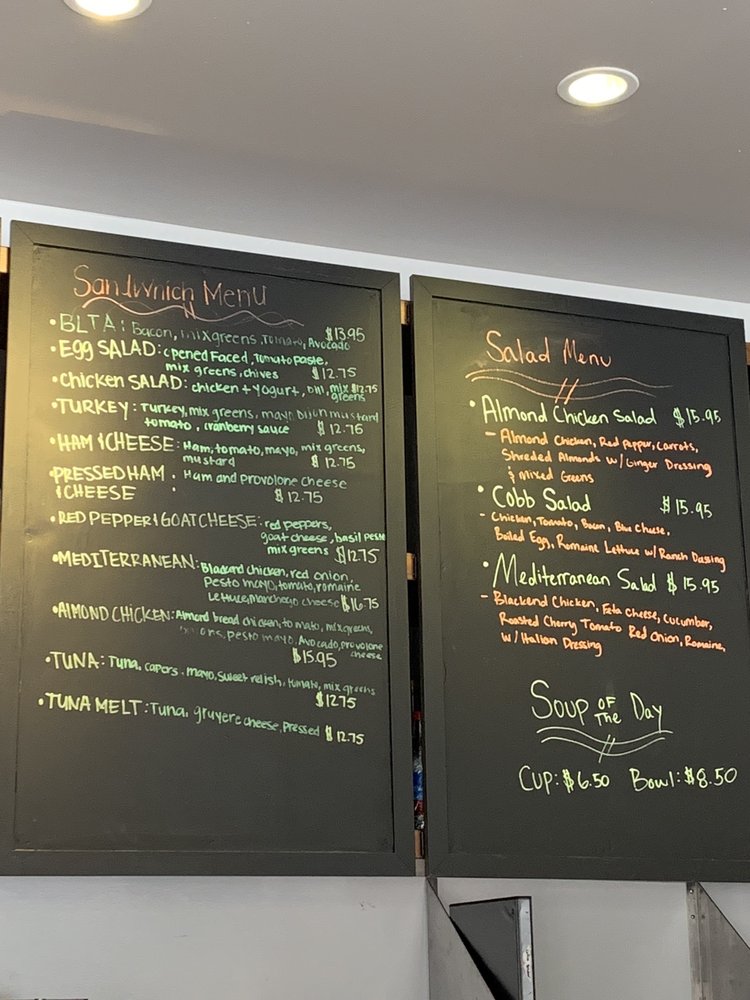 Sandwnich Menu
•BLTA: Bacon, mixgreens, Tomato, Avocado $13.95
•EGG SALAD: opened Faced, Tomato paste,
mix greens, chives $12.75
•Chicken SALAD: chicken + yogurt, Dill, mix $12.75
greens
•TURKEY: Turkey, mix greens, mayo Dijon mustard
tomato, cranberry sauce $12.75
•HAM & CHEESE: Ham, tomato, mayo, mix greens,
mustard $12.75
•PRESSED HAM : Ham and provolone cheese
& CHEESE : $12.75
•RED PEPPER & GOAT CHEESE: red peppers,
goat cheese, basil peste
mix greens $12.75
•MEDITERRANEAN: chicken, red onion,
Pesto mayo, tomato, romaine
Lettuce, Manchego cheese $16.75
•ALMOND CHICKEN: Almond bread chicken, to mato, mix greens,
pesto mayo, Avocado, provolone
cheese
$15.95
•TUNA: Tuna, capers, mayo, sweet relish, tomato, mix greens
$12.75
•TUNA MELT: Tuna, gruyere cheese, pressed $12.75
Salad Menu
• Almond Chicken Salad $15.95
- Almond Chicken, Red Pepper, Carrots,
Shreded Almonds w/ Ginger Dressing
& Mixed Greens
• Cobb Salad $15.95
- Chicken, Tomato, Bacon, Blue Cheese,
Boiled Egg, Romaine Lettuce w/ Ranch Dressing
• Mediterranean Salad $15.95
- Blackend Chicken, Feta Cheese, Cucumber,
Roasted Cherry Tomato Red Onion, Romaine,
w/ Italion Dressing
Soup OF The Day
Cup: $6.50 Bowl: $8.50